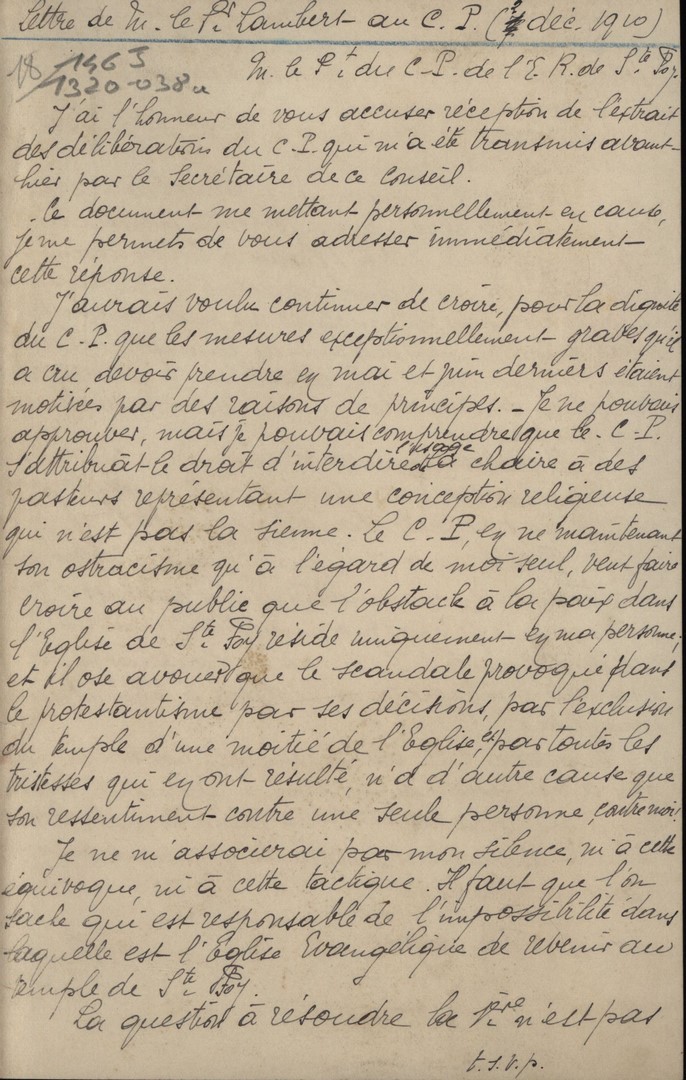 Lettre de M. le Pr Lambert au C. P. (2 déc. 1910)
18 1463
1320-038a
M. le Pt du C.P. de l'E. R. de Ste Foy.
J'ai l'honneur de vous accuser réception de l'extrait
des délibérations du C.P. qui m'a été transmis avant-
hier par le Secrétaire de ce Conseil.
Ce document me mettant personnellement en cause,
je me permets de vous adresser immédiatement
cette réponse.
J'aurais voulu continuer de croire, pour la dignité
du C.P. que les mesures exceptionnellement graves qu'il
a cru devoir prendre en mai et juin derniers étaient
motivées par des raisons de principes. - Je ne pouvais
approuver, mais je pouvais comprendre que le C.P.
s'attribuât le droit d'interdire l'usage de la chaire à des
pasteurs représentant une conception religieuse
qui n'est pas la sienne. Le C.P., en ne maintenant
son ostracisme qu'à l'égard de moi seul, veut faire
croire au public que l'obstacle à la paix dans
l'Eglise de Ste Foy réside uniquement en ma personne;
et il ose avouer que le scandale provoqué dans
le protestantisme par ses décisions, par l'exclusion
du temple d'une moitié de l'Eglise, et par toutes les
tristesses qui en ont résulté, n'a d'autre cause que
son ressentiment contre une seule personne, contre moi!
Je ne m'associerai par mon silence, ni à cette
équivoque, ni à cette tactique. Il faut que l'on
sache qui est responsable de l'impossibilité dans
laquelle est l'Église Evangélique de revenir au
temple de Ste Foy.
La question à résoudre la 1ère n'est pas
t.s.v.p.